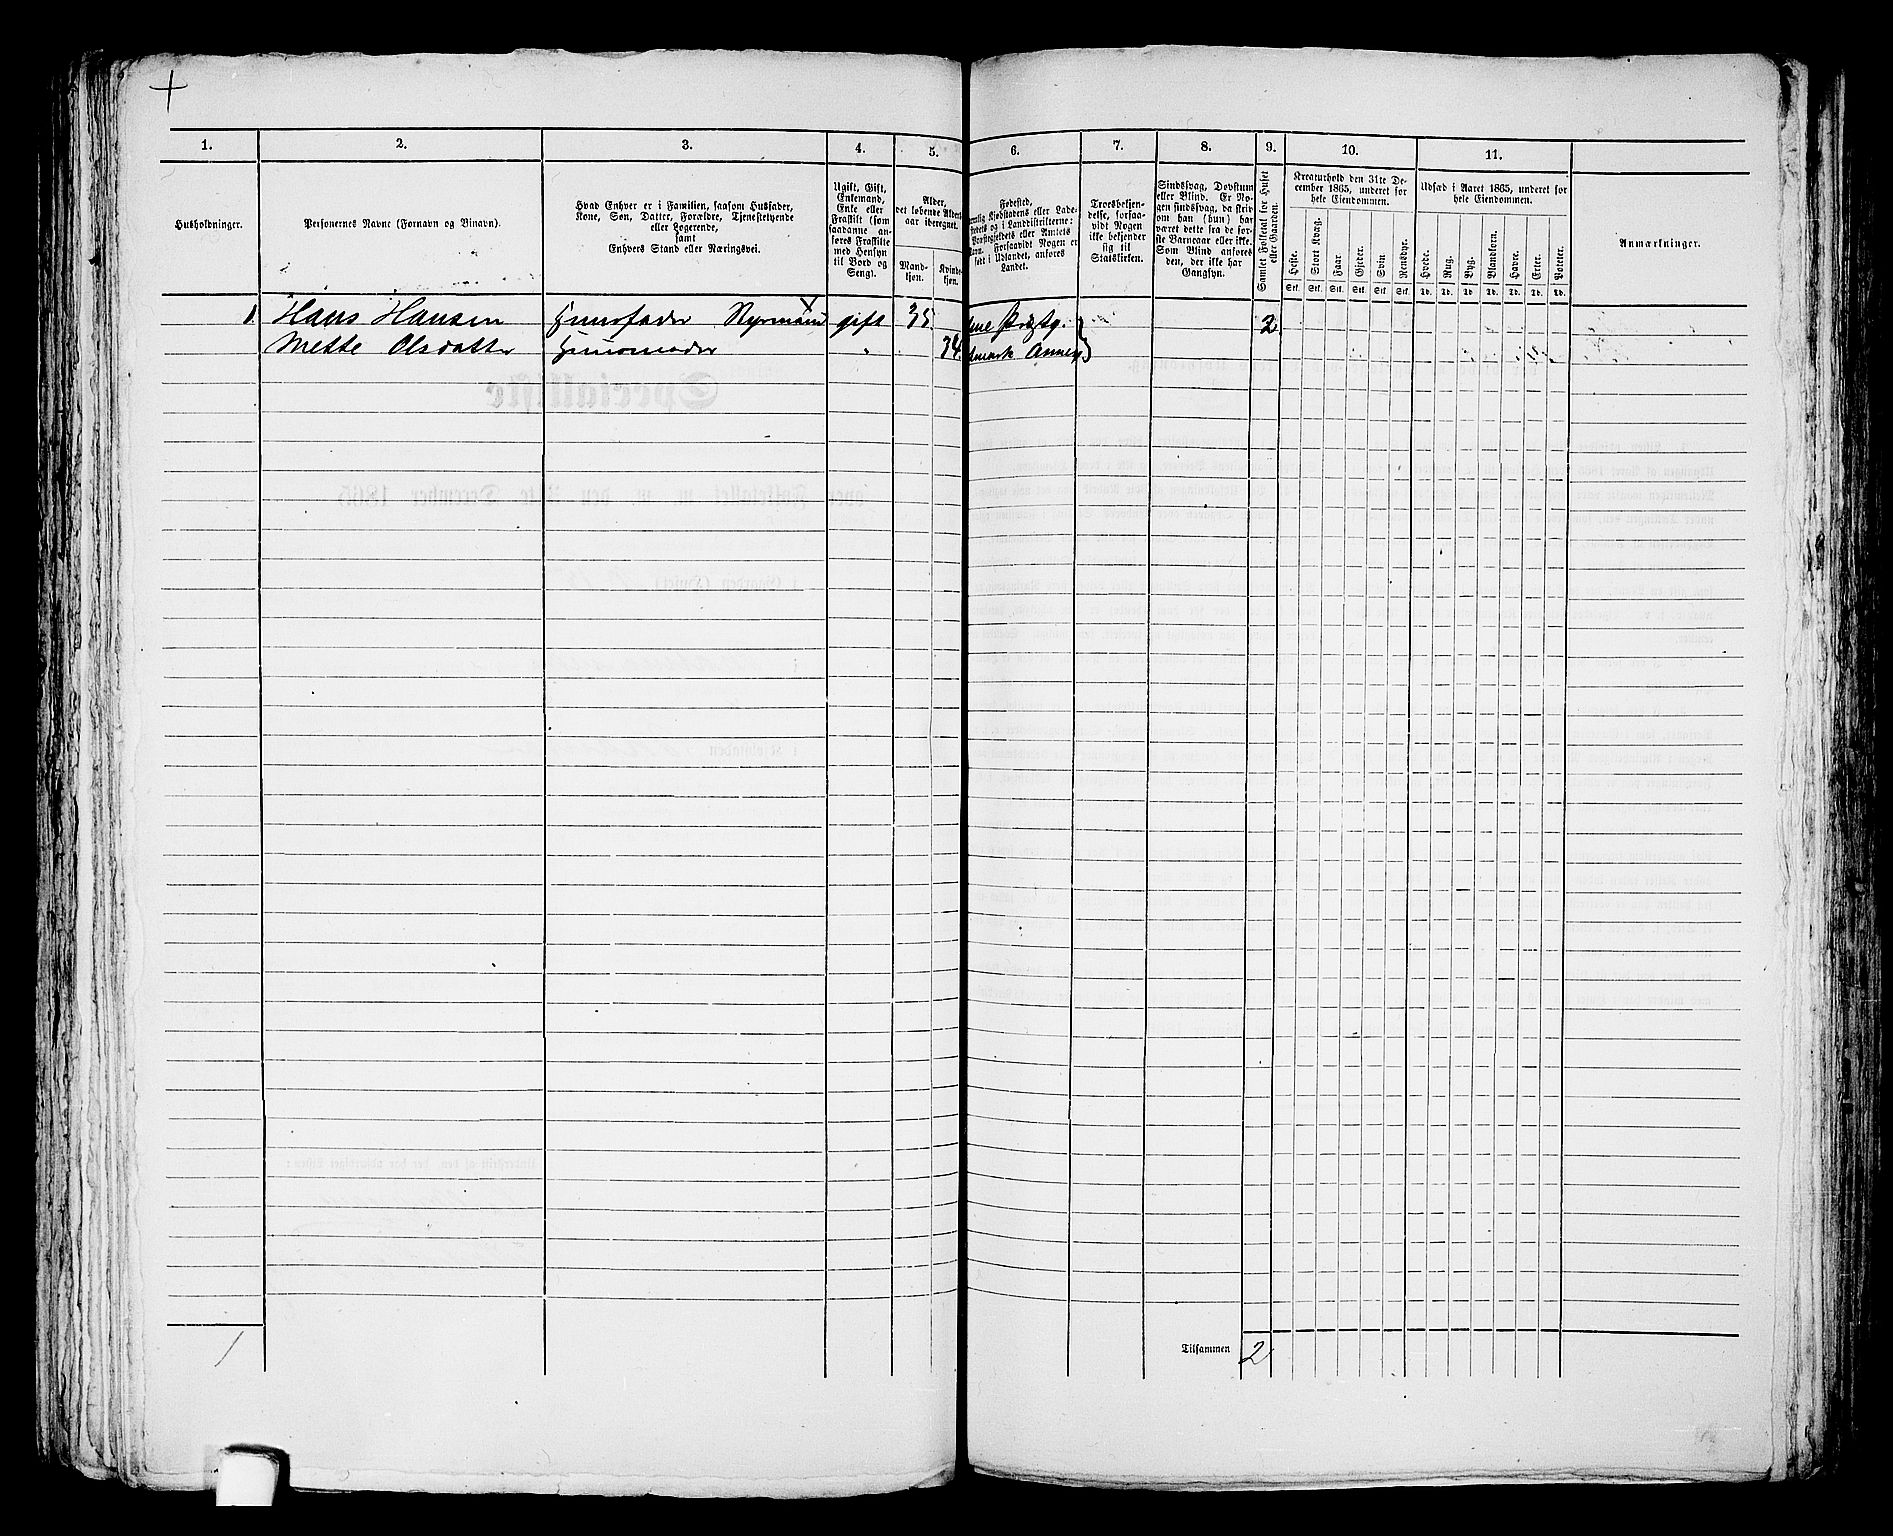 1. 2. 3. 4. 5. 6. 7. 8. 9. 10. 11.
Husholdninger.
Personernes Navne (Fornavn og Tilnavn).
Hvad Enhver er i Familien, saasom Husfader,
Kone, Søn, Datter, Forældre, Tjenestetyende
eller Logerende,
samt
Enhvers Stand eller Næringsvei.
Ugift, Gift,
Enkemand,
Enke eller
Fraskilt (som
saadanne an-
føres Fraskilte
med Hensyn
til Bord og
Seng).
Alder,
det løbende Alders-
aar iberegnet.
Mand-
kjøn.
Kvinde-
kjøn.
Fødested,
Kjøbstadens eller Lade-
stedets og i Landdistrikterne:
Præstegjeldets eller Amtets
Navn. Forsaavidt Nogen er
født i Udlandet, anføres
Landet.
Troesbekjen-
delse, forsaa-
vidt Nogen
ikke bekjender
sig til
Statskirken.
Sindssvag, Døvstum
eller Blind. Er No-
gen sindssvag, da skriv
om han (hun) har
været dette fra de før-
ste Barneaar eller ikke.
Som Blind anføres
den, der ikke har
Gangsyn.
Samlet Folketal for Huset
eller Gaarden.
Kreaturhold den 31te De-
cember 1865, underet for
hele Eiendommen.
Heste. Stort Kvæg. Faar. Gjeder. Svin. Rensdyr.
Stk. Stk. Stk. Stk. Stk. Stk.
Udsæd i Aaret 1865, underet for
hele Eiendommen.
Hvede. Rug. Byg. Blandkorn. Havre. Erter. Poteter.
Td. Td. Td. Td. Td. Td. Td.
Anmærkninger.
1. Hans Hansen Huusfader gift 35 2
Mette Olsdatter Huusmoder " 34
1
Tilsammen 2